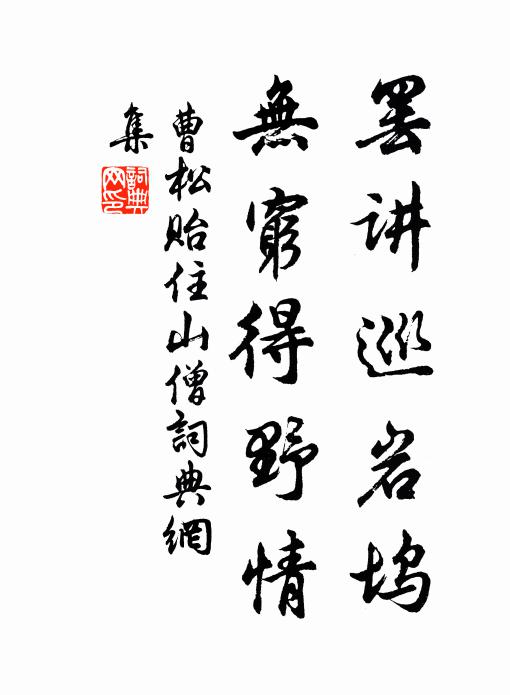 罢讲巡岩坞
無窮得野情
曹松貽住山僧詞典網
集
詞典网印